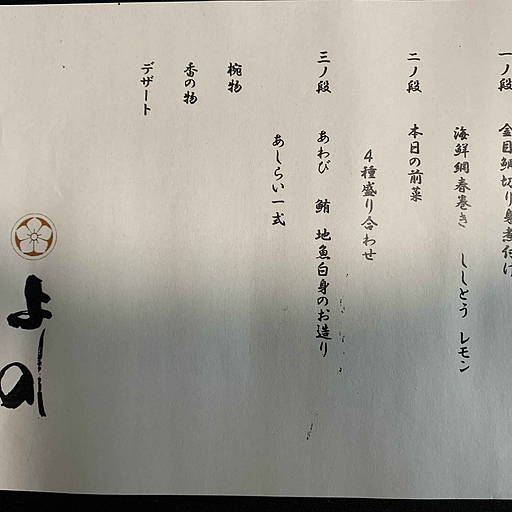 一ノ段 金目鯛切り身煮付け
海鮮網春巻き ししとう レモン
二ノ段 本日の前菜
4種盛り合わせ
三ノ段 あわび 鮪 地魚白身のお造り
あしらい一式
椀物
香の物
デザート